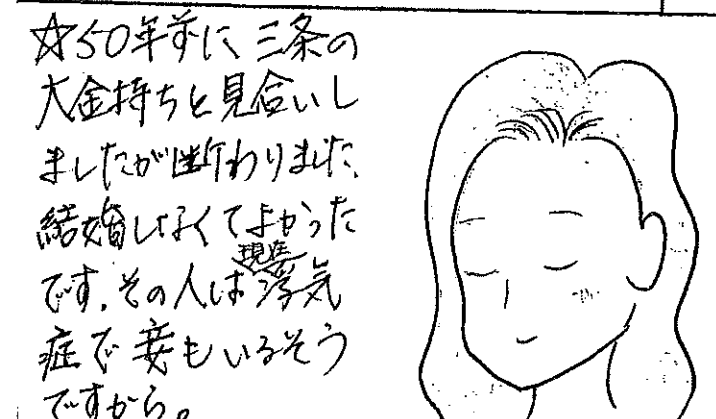 ☆50年前に、三条の
大金持ちと見合いし
ましたが断わりました。
結婚しなくてよかった
です。その人は現在浮気
症で妾もいるそう
ですから。